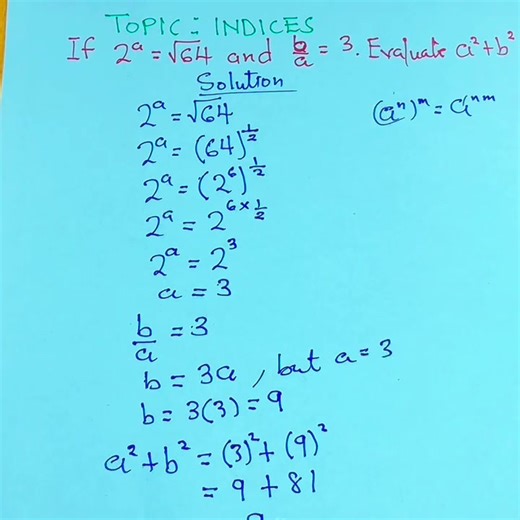 TOPIC: INDICES
If 2^a = √64 and b/a = 3. Evaluate a² + b²
Solution
2^a = √64
(a^n)^m = a^nm
2^a = (64)^½
2^a = (2^6)^½
2^a = 2^(6×½)
2^a = 2³
a = 3
b/a = 3
b = 3a, but a = 3
b = 3(3) = 9
a² + b² = (3)² + (9)²
= 9 + 81